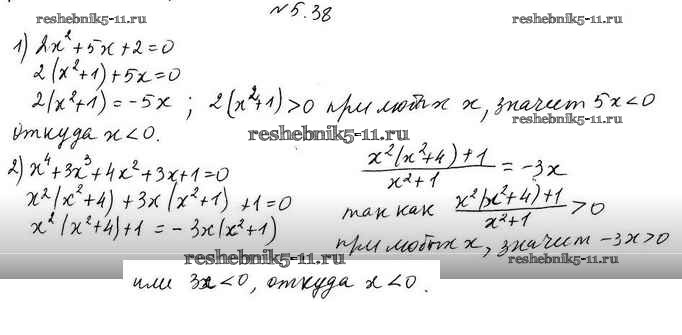 №5.38
reshebnik5-11.ru reshebnik5-11.ru
1) 2x² + 5x + 2 = 0
2(x²+1) + 5x = 0
2(x²+1) = -5x ; 2(x²+1) > 0 при любых x, значит 5x < 0
откуда x < 0.
reshebnik5-11.ru
2) x⁴ + 3x³ + 4x² + 3x + 1 = 0
x²(x²+4) + 3x(x²+1) + 1 = 0
x²(x²+4) + 1 = -3x(x²+1)
(x²(x²+4)+1)/(x²+1) = -3x
так как (x²(x²+4)+1)/(x²+1) > 0
при любых x, значит -3x > 0
reshebnik5-11.ru reshebnik5-11.ru
или 3x < 0, откуда x < 0.